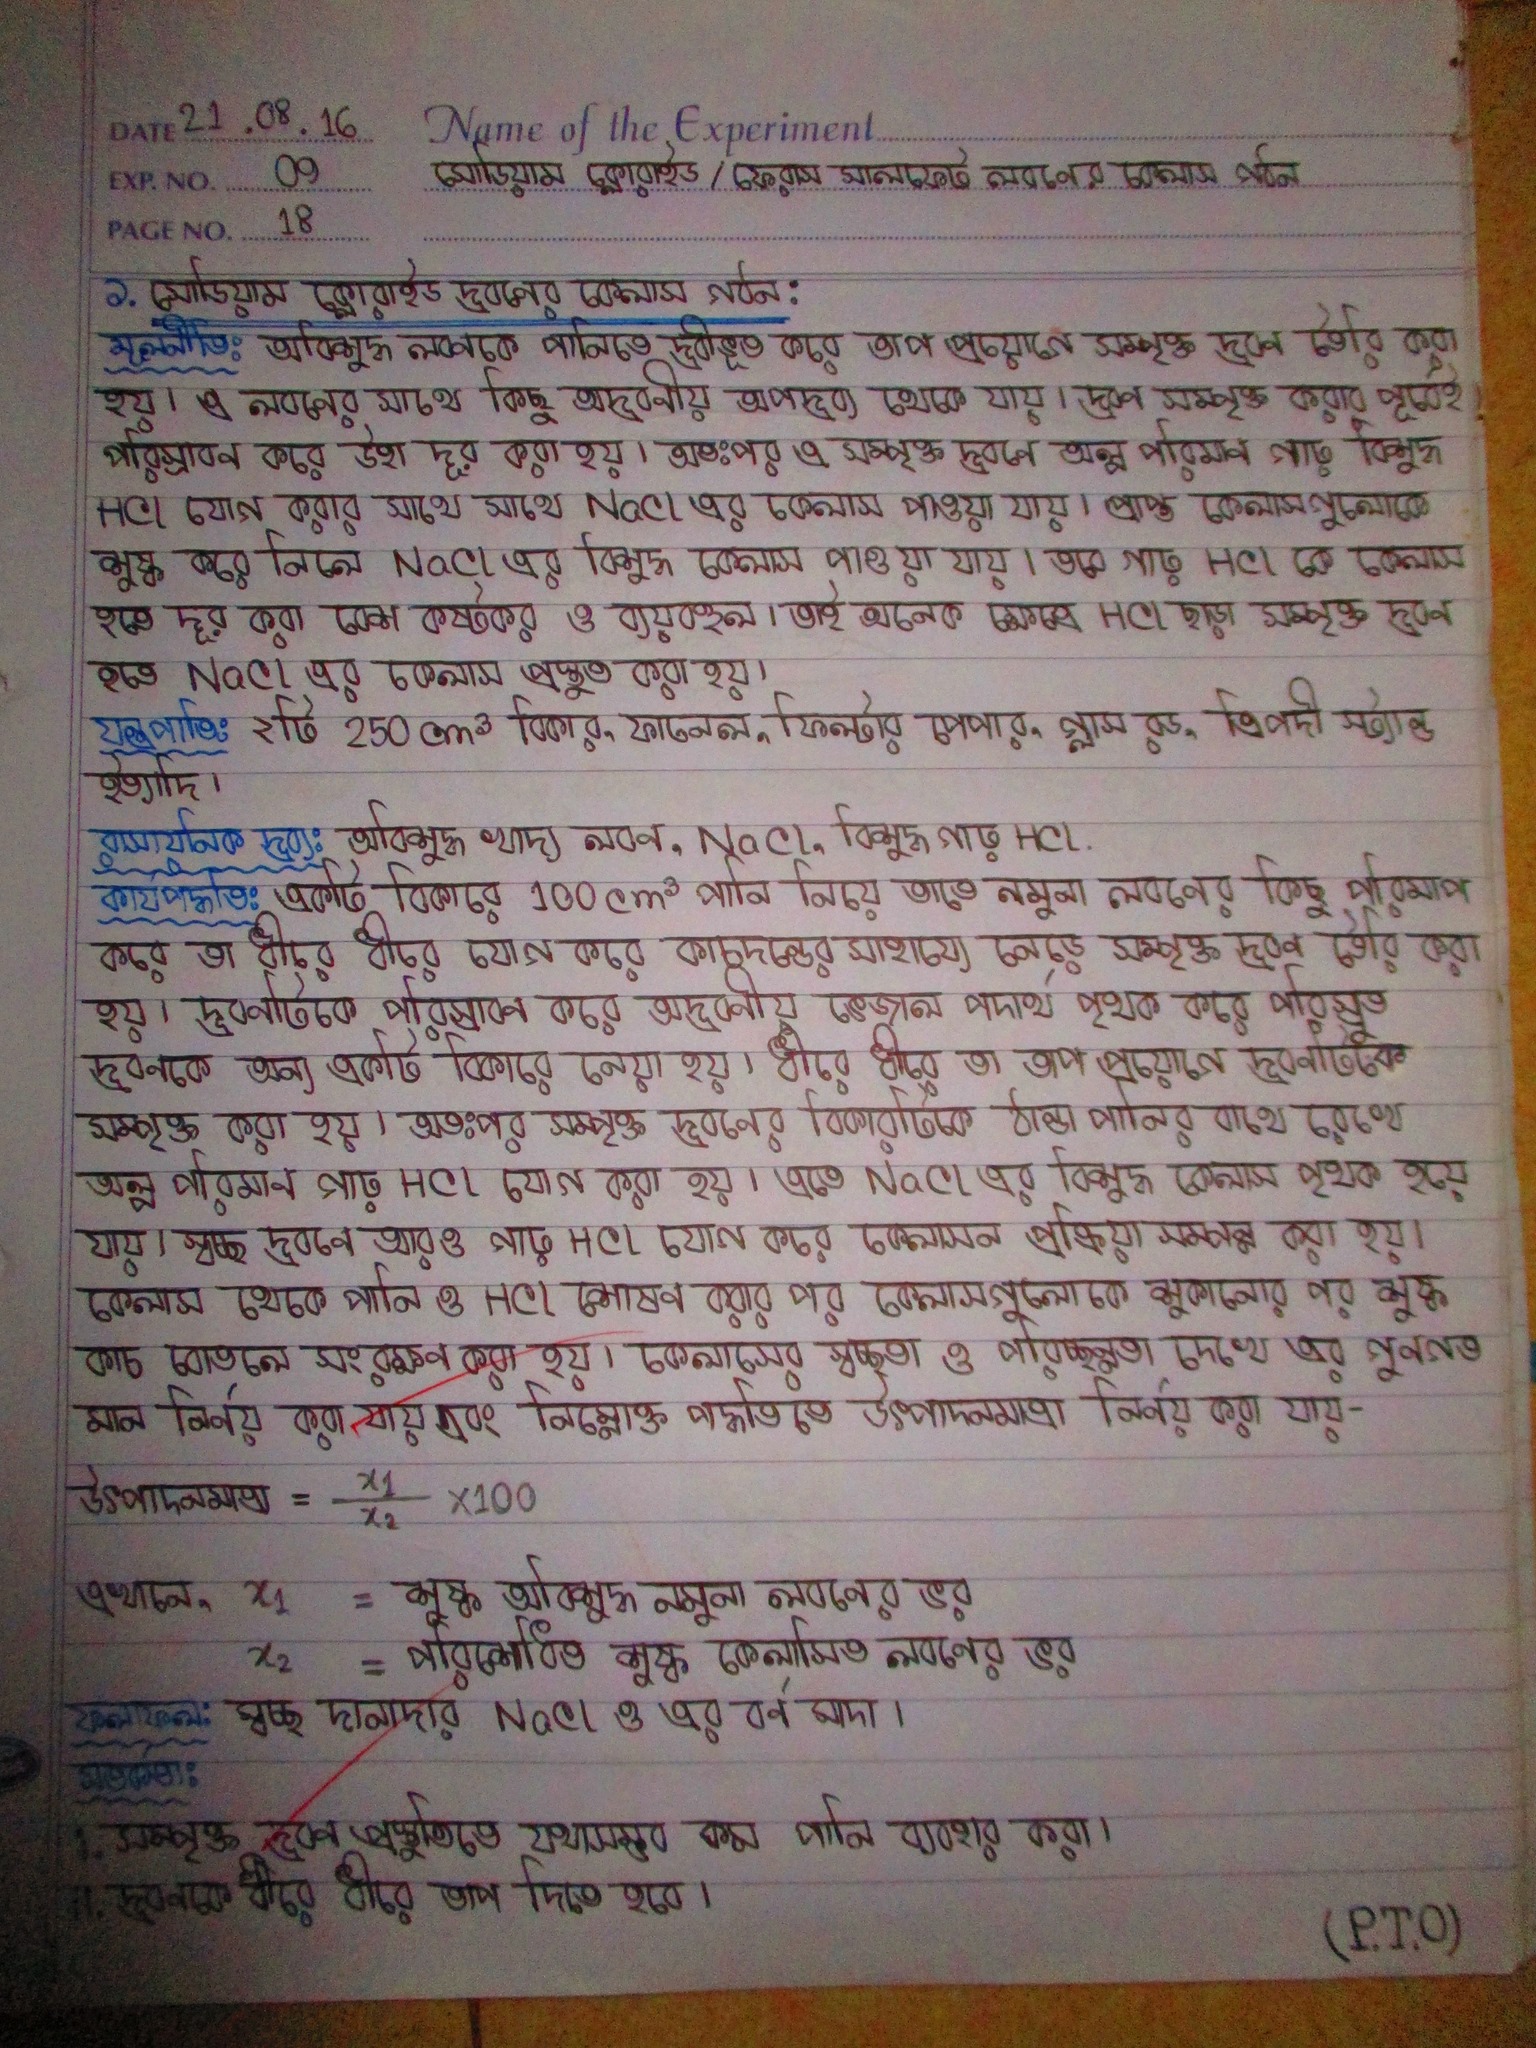 DATE 21.08.16 Name of the Experiment
EXP. NO. 09 সোডিয়াম ক্লোরাইড / ফেরাস সালফেট লবনের কেলাস গঠন
PAGE NO. 18
১. সোডিয়াম ক্লোরাইড দ্রবনের কেলাস গঠন:
মূলনীতিঃ অবিশুদ্ধ লবণকে পানিতে দ্রবীভূত করে তাপ প্রয়োগে সম্পৃক্ত দ্রবণ তৈরি করা
হয়। এ লবনের সাথে কিছু অদ্রবনীয় অপদ্রব্য থেকে যায়। দ্রবণ সম্পৃক্ত করার পূর্বেই
পরিস্রাবন করে উহা দূর করা হয়। অতঃপর এ সম্পৃক্ত দ্রবনে অল্প পরিমান গাঢ় বিশুদ্ধ
HCl যোগ করার সাথে সাথে NaCl এর কেলাস পাওয়া যায়। প্রাপ্ত কেলাসগুলোকে
শুষ্ক করে নিলে NaCl এর বিশুদ্ধ কেলাস পাওয়া যায়। তবে গাঢ় HCl কে কেলাস
হতে দূর করা বেশ কষ্টকর ও ব্যয়বহুল। তাই অনেক ক্ষেত্রে HCl ছাড়া সম্পৃক্ত দ্রবন
হতে NaCl এর কেলাস প্রস্তুত করা হয়।
যন্ত্রপাতিঃ ২টি 250 cm³ বিকার, ফানেল, ফিল্টার পেপার, গ্লাস রড, ত্রিপদী স্ট্যান্ড
ইত্যাদি।
রাসায়নিক দ্রব্যঃ অবিশুদ্ধ খাদ্য লবণ, NaCl, বিশুদ্ধ গাঢ় HCl.
কার্যপদ্ধতিঃ একটি বিকারে 100 cm³ পানি নিয়ে তাতে নমুনা লবনের কিছু পরিমাপ
করে তা ধীরে ধীরে যোগ করে কাচদন্ডের সাহায্যে নেড়ে সম্পৃক্ত দ্রবণ তৈরি করা
হয়। দ্রবনটিকে পরিস্রাবন করে অদ্রবনীয় ভেজাল পদার্থ পৃথক করে পরিস্রুত
দ্রবনকে অন্য একটি বিকারে নেয়া হয়। ধীরে ধীরে তা তাপ প্রয়োগে দ্রবনটিকে
সম্পৃক্ত করা হয়। অতঃপর সম্পৃক্ত দ্রবনের বিকারটিকে ঠান্ডা পানির বাথে রেখে
অল্প পরিমান গাঢ় HCl যোগ করা হয়। এতে NaCl এর বিশুদ্ধ কেলাস পৃথক হয়ে
যায়। স্বচ্ছ দ্রবনে আরও গাঢ় HCl যোগ করে কেলাসন প্রক্রিয়া সম্পন্ন করা হয়।
কেলাস থেকে পানি ও HCl শোষণ করার পর কেলাসগুলোকে শুকানোর পর শুষ্ক
কাচ বোতলে সংরক্ষণ করা হয়। কেলাসের স্বচ্ছতা ও পরিচ্ছন্নতা দেখে এর গুনগত
মান নির্ণয় করা যায় এবং নিম্নোক্ত পদ্ধতিতে উৎপাদনমাত্রা নির্ণয় করা যায়-
উৎপাদনমাত্রা = x₁/x₂ ×100
এখানে, x₁ = শুষ্ক অবিশুদ্ধ নমুনা লবনের ভর
x₂ = পরিশোধিত শুষ্ক কেলাসিত লবনের ভর
ফলাফল: স্বচ্ছ দানাদার NaCl ও এর বর্ণ সাদা।
সতর্কতা:
i. সম্পৃক্ত দ্রবণ প্রস্তুতিতে যথাসম্ভব কম পানি ব্যবহার করা।
ii. দ্রবনকে ধীরে ধীরে তাপ দিতে হবে।
(P.T.O)